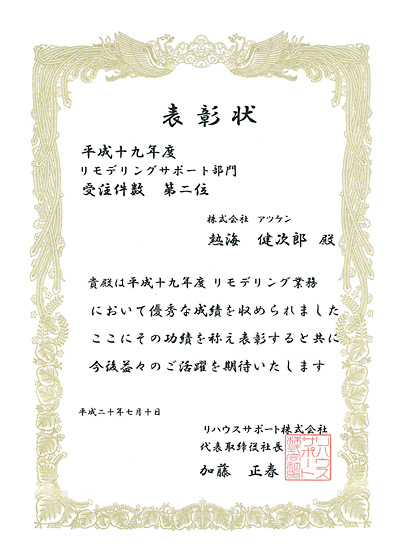 表彰状
平成十九年度
リモデリングサポート部門
受注件数　第二位
株式会社　アツケン
熱海　健次郎　殿
貴殿は平成十九年度 リモデリング業務
において優秀な成績を収められました
ここにその功績を称え表彰すると共に
今後益々のご活躍を期待いたします
平成二十年七月十日
リハウスサポート株式会社
代表取締役社長
加藤　正春
リハウス
サポート
株式会社